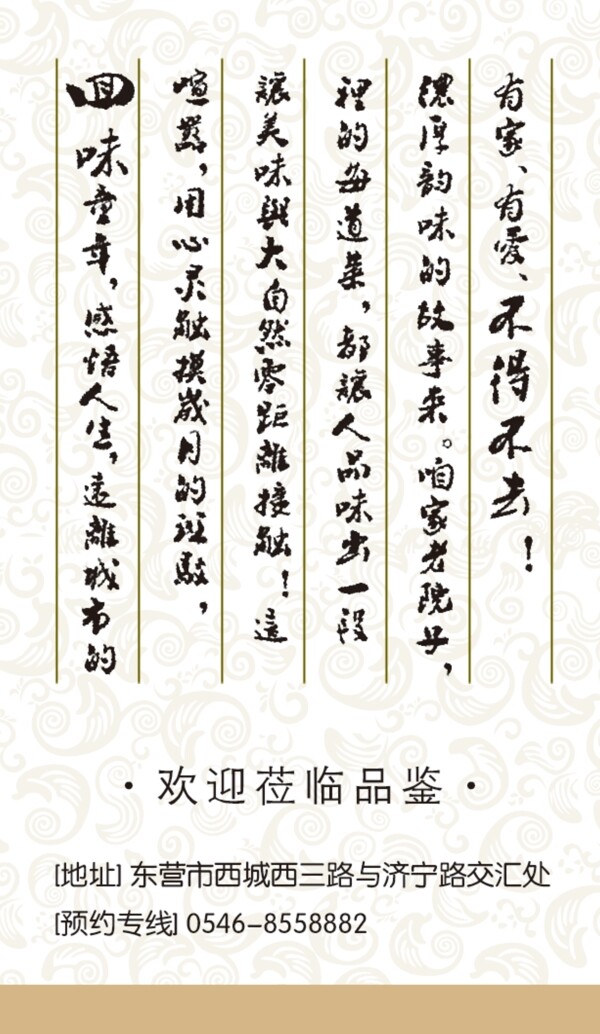 回味童年，感悟人生，遠離城市的
喧囂，用心灵触摸歲月的斑駁，
讓美味與大自然零距離接触！這
裡的每道菜，都讓人品味出一段
濃厚韵味的故事来。咱家老院子，
有家、有愛、不得不去！
·欢迎莅临品鉴·
[地址] 东营市西城西三路与济宁路交汇处
[预约专线] 0546-8558882